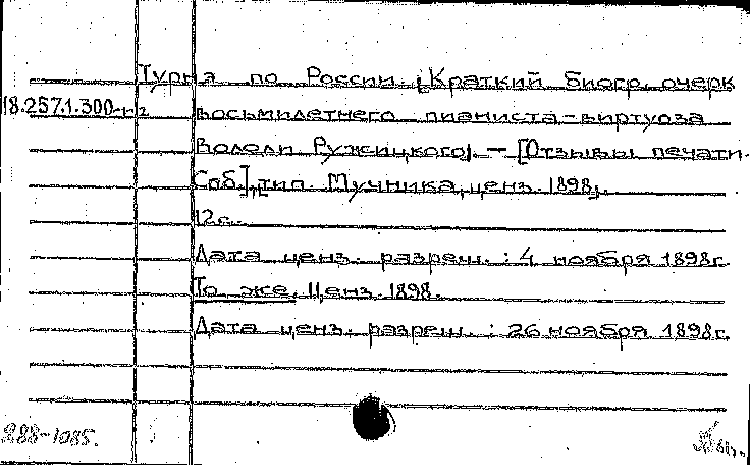 Турнэ по России. [Краткий биогр. очерк
18.257.1.300
восьмилетнего пианиста-виртуоза
Володи Ружицкого]. — [Отзывы печати.
Спб.], тип. Мучника, ценз. 1898.
12с.
Дата ценз. разреш.: 4 ноября 1898г.
То же. Ценз. 1898.
Дата ценз. разреш.: 26 ноября 1898г.
288-1085.